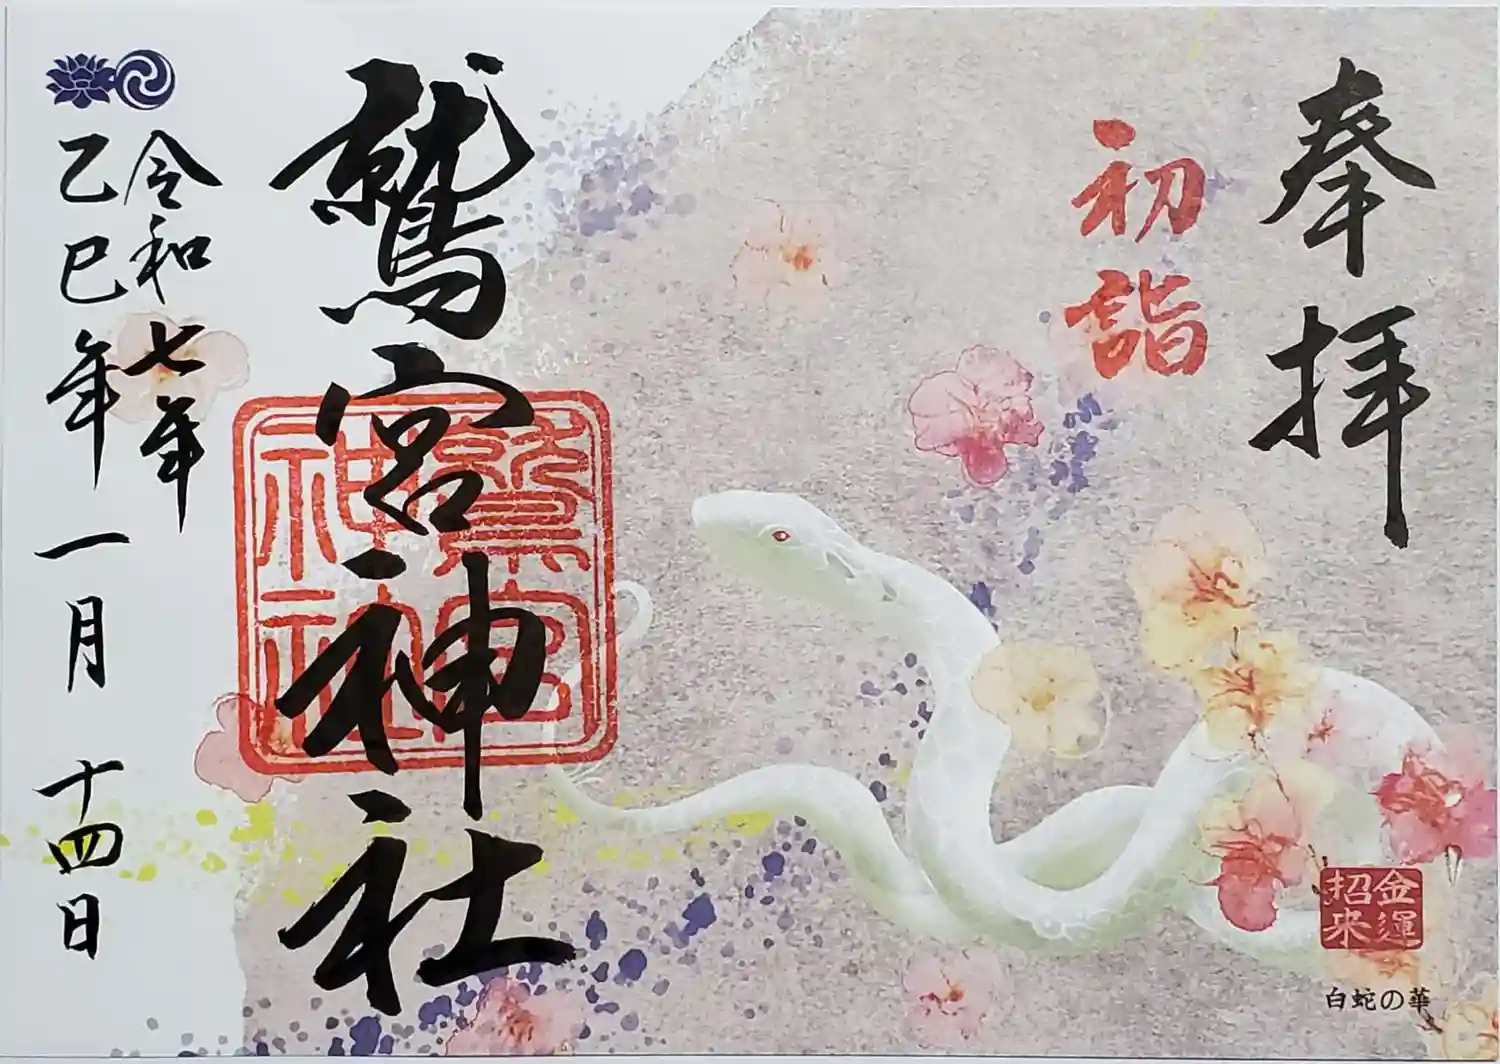 奉拝
初詣
金運
招来
白蛇の華
鷲宮神社
鷲宮
神社
令和七年
乙巳年 一月 十四日